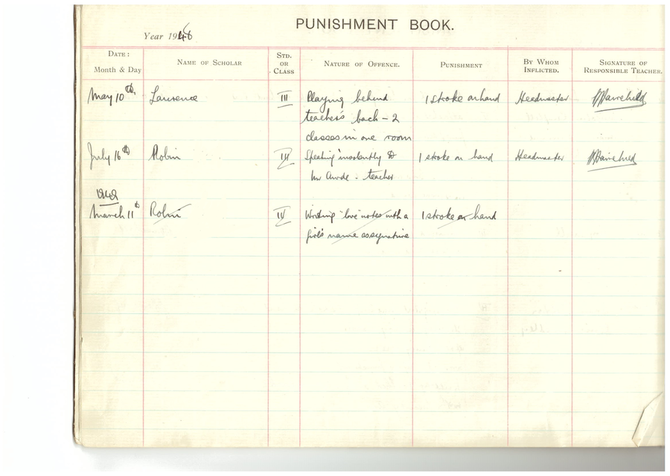 PUNISHMENT BOOK.
Year 1946
DATE:
Month & Day
NAME OF SCHOLAR
STD.
OR
CLASS
NATURE OF OFFENCE.
PUNISHMENT
BY WHOM
INFLICTED.
SIGNATURE OF
RESPONSIBLE TEACHER.
May 10th Lawrence III Playing behind 1 stroke on hand Headmaster
teacher's back - 2
classes in one room
July 16th Robin III Speaking insolently to 1 stroke on hand Headmaster
teacher
March 11th Robin IV Writing "love" notes with a 1 stroke on hand
girl's name as signature